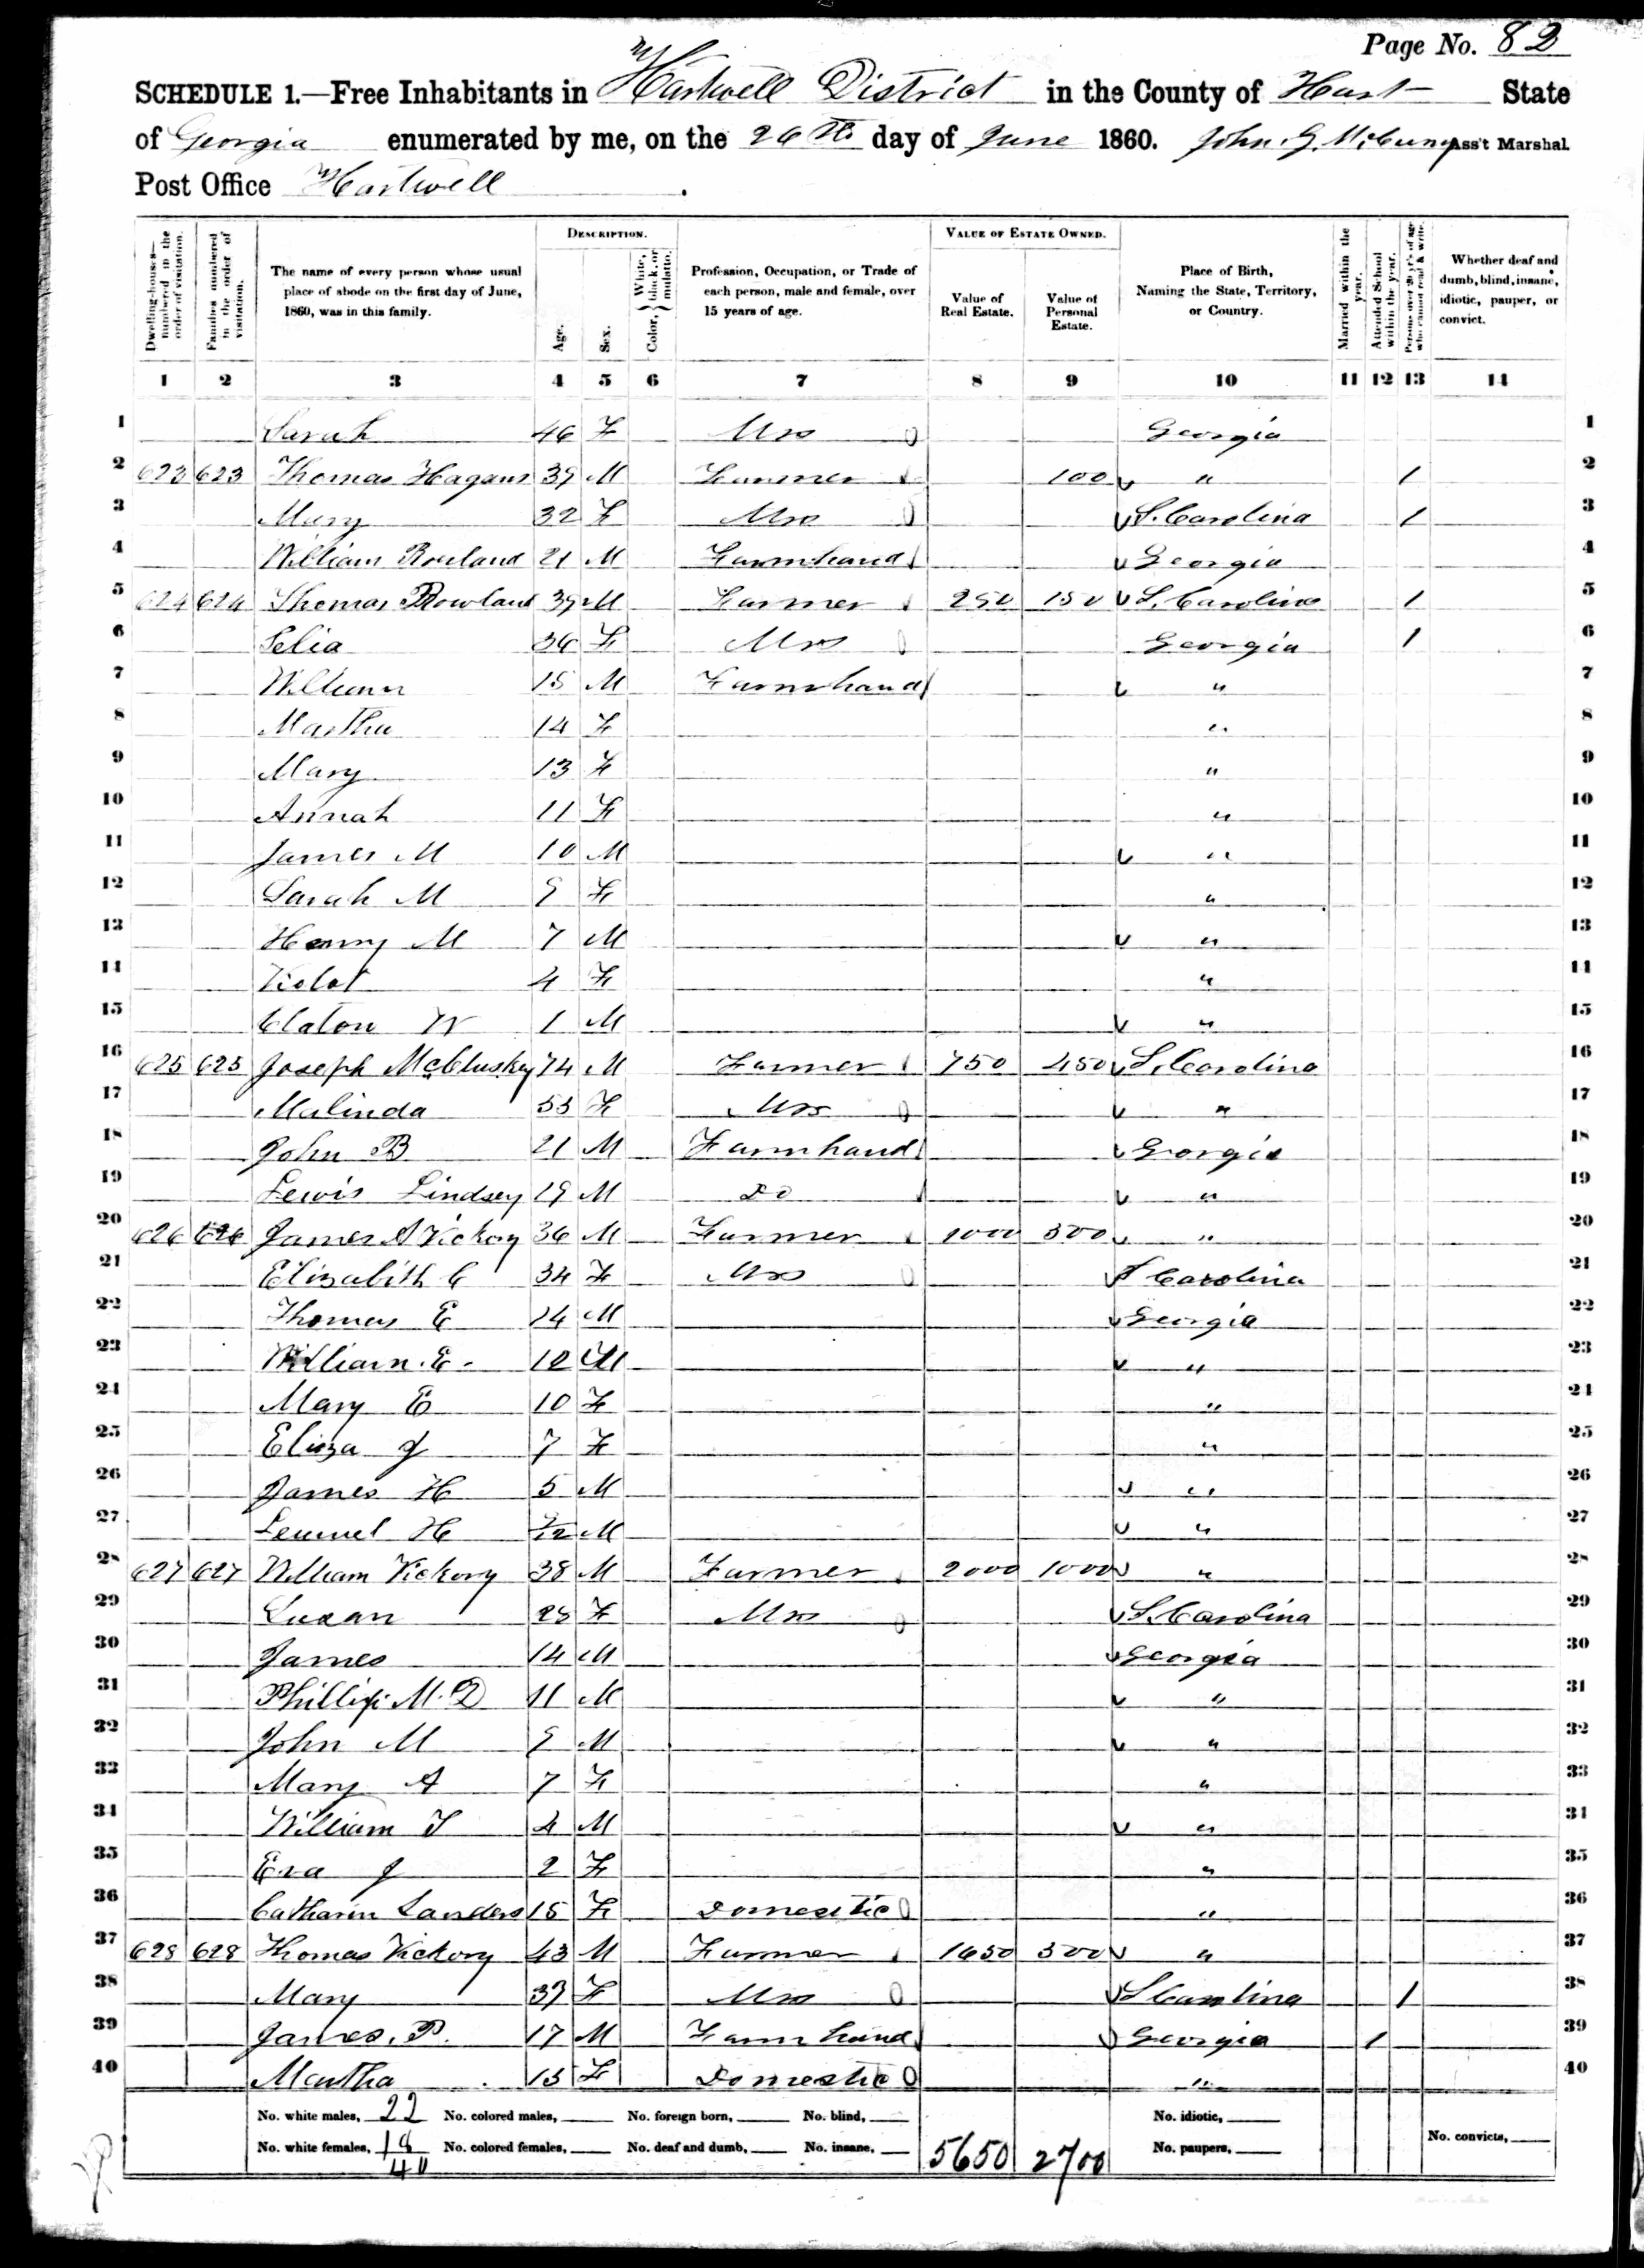 Page No. 82
SCHEDULE 1.—Free Inhabitants in Hartwell District in the County of Hart State
of Georgia enumerated by me, on the 26th day of June 1860. John G. McCurry Ass't Marshal.
Post Office Hartwell.
Dwelling-houses—numbered in the order of visitation.
Families numbered in the order of visitation.
The name of every person whose usual place of abode on the first day of June, 1860, was in this family.
DESCRIPTION.
Age.
Sex.
Color, { White, black, or mulatto.
Profession, Occupation, or Trade of each person, male and female, over 15 years of age.
VALUE OF ESTATE OWNED.
Value of Real Estate.
Value of Personal Estate.
Place of Birth, Naming the State, Territory, or Country.
Married within the year.
Attended School within the year.
Persons over 20 y'rs of age who cannot read & write.
Whether deaf and dumb, blind, insane, idiotic, pauper, or convict.
1 2 3 4 5 6 7 8 9 10 11 12 13 14
1 Sarah 46 F Mrs Georgia 1
2 623 623 Thomas Hagans 39 M Farmer 100 " / 2
3 Mary 32 F Mrs S. Carolina / 3
4 William Rowland 21 M Farmhand Georgia 4
5 624 624 Thomas Rowland 39 M Farmer 250 150 S. Carolina / 5
6 Selia 36 F Mrs Georgia / 6
7 William 15 M Farmhand " 7
8 Martha 14 F " 8
9 Mary 13 F " 9
10 Annah 11 F " 10
11 James M 10 M " 11
12 Sarah M 9 F " 12
13 Henry M 7 M " 13
14 Violet 4 F " 14
15 Claton W 1 M " 15
16 625 625 Joseph McClusky 74 M Farmer 750 450 S. Carolina 16
17 Malinda 53 F Mrs " 17
18 John B 21 M Farmhand Georgia 18
19 Lewis Lindsey 19 M Do " 19
20 626 626 James A Vickory 36 M Farmer 1000 500 " 20
21 Elizabith C 34 F Mrs S Carolina 21
22 Thomas E 14 M Georgia 22
23 William E. 12 M " 23
24 Mary E 10 F " 24
25 Eliza J 7 F " 25
26 James H 5 M " 26
27 Lemuel H M " 27
28 627 627 William Vickory 38 M Farmer 2000 1000 " 28
29 Susan F Mrs S. Carolina 29
30 James 14 M Georgia 30
31 Phillip M. D 11 M " 31
32 John M 9 M " 32
33 Mary A 7 F " 33
34 William T 4 M " 34
35 Eva J 2 F " 35
36 Catharin Sanders 15 F Domestic " 36
37 628 628 Thomas Vickory 43 M Farmer 1650 500 " 37
38 Mary 37 F Mrs S Carolina / 38
39 James. P. 17 M Farm hand Georgia / 39
40 Martha 15 F Domestic " 40
No. white males, 22 No. colored males, No. foreign born, No. blind, No. idiotic,
No. white females, 18 No. colored females, No. deaf and dumb, No. insane, 5650 2700 No. paupers, No. convicts,
40